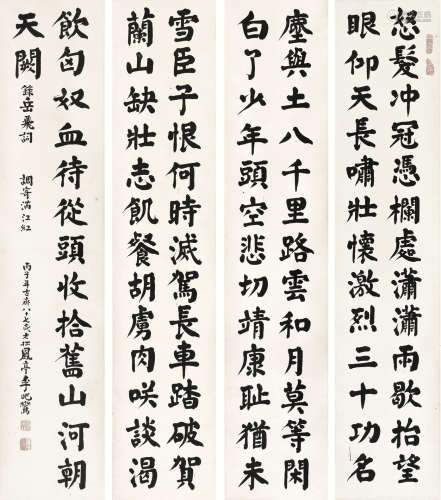 怒髮冲冠憑欄處瀟瀟雨歇抬望
眼仰天長嘯壯懷激烈三十功名
塵與土八千里路雲和月莫等閑
白了少年頭空悲切靖康耻猶未
雪臣子恨何時滅駕長車踏破賀
蘭山缺壯志飢餐胡虜肉咲談渴
飲匈奴血待從頭收拾舊山河朝
天闕
錄岳飛詞 調寄滿江紅
丙子年 八十七 鳳亭李